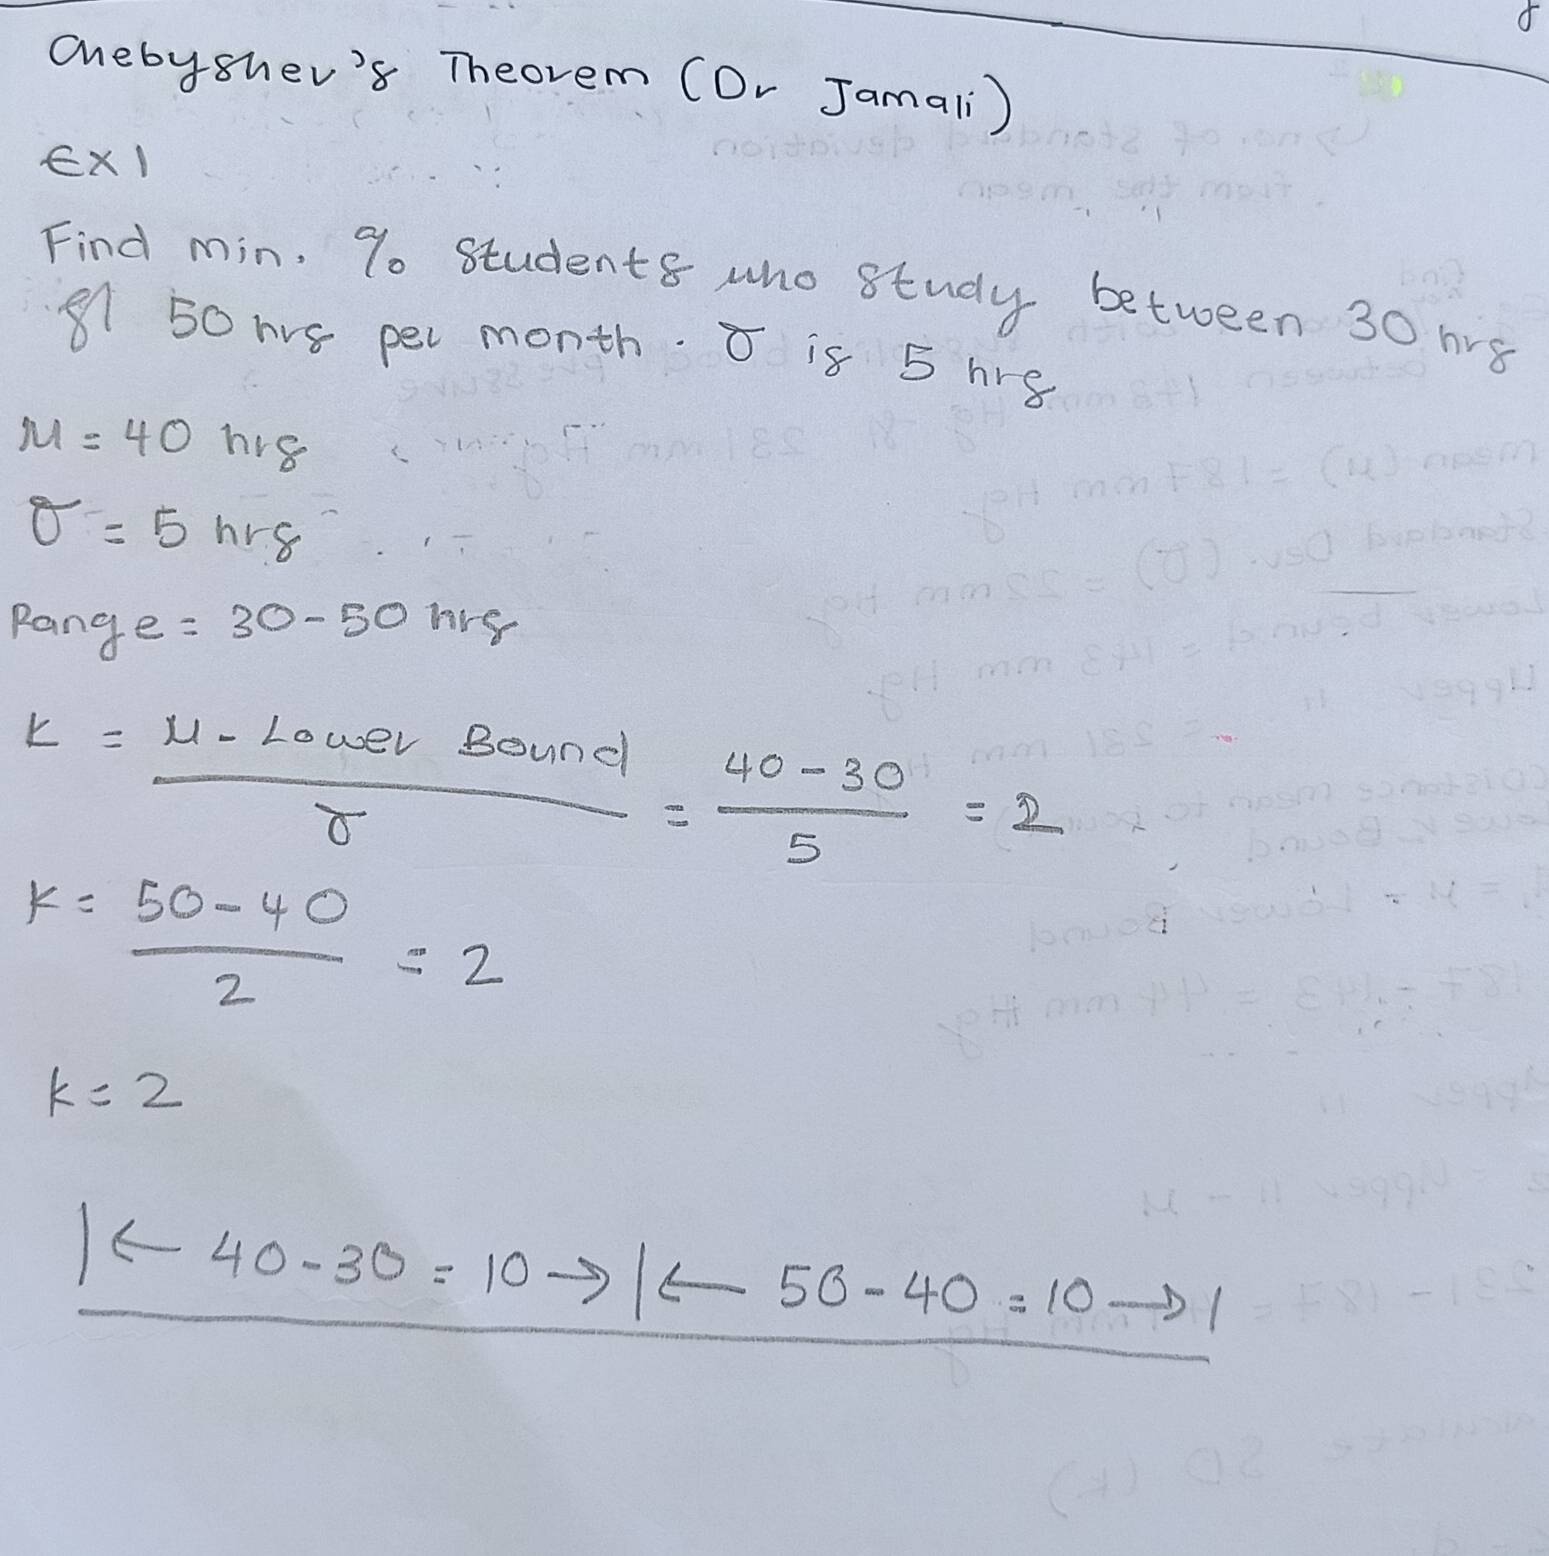 Chebyshev's Theorem (Dr Jamali)
EX 1
Find min. % students who study between 30 hrs
& 50 hrs per month. σ is 5 hrs
μ = 40 hrs
σ = 5 hrs
Range = 30-50 hrs
K = μ - Lower Bound / σ = 40-30 / 5 = 2
K = 50-40 / 2 = 2
k = 2
|← 40-30 = 10 →|← 50-40 = 10 →|